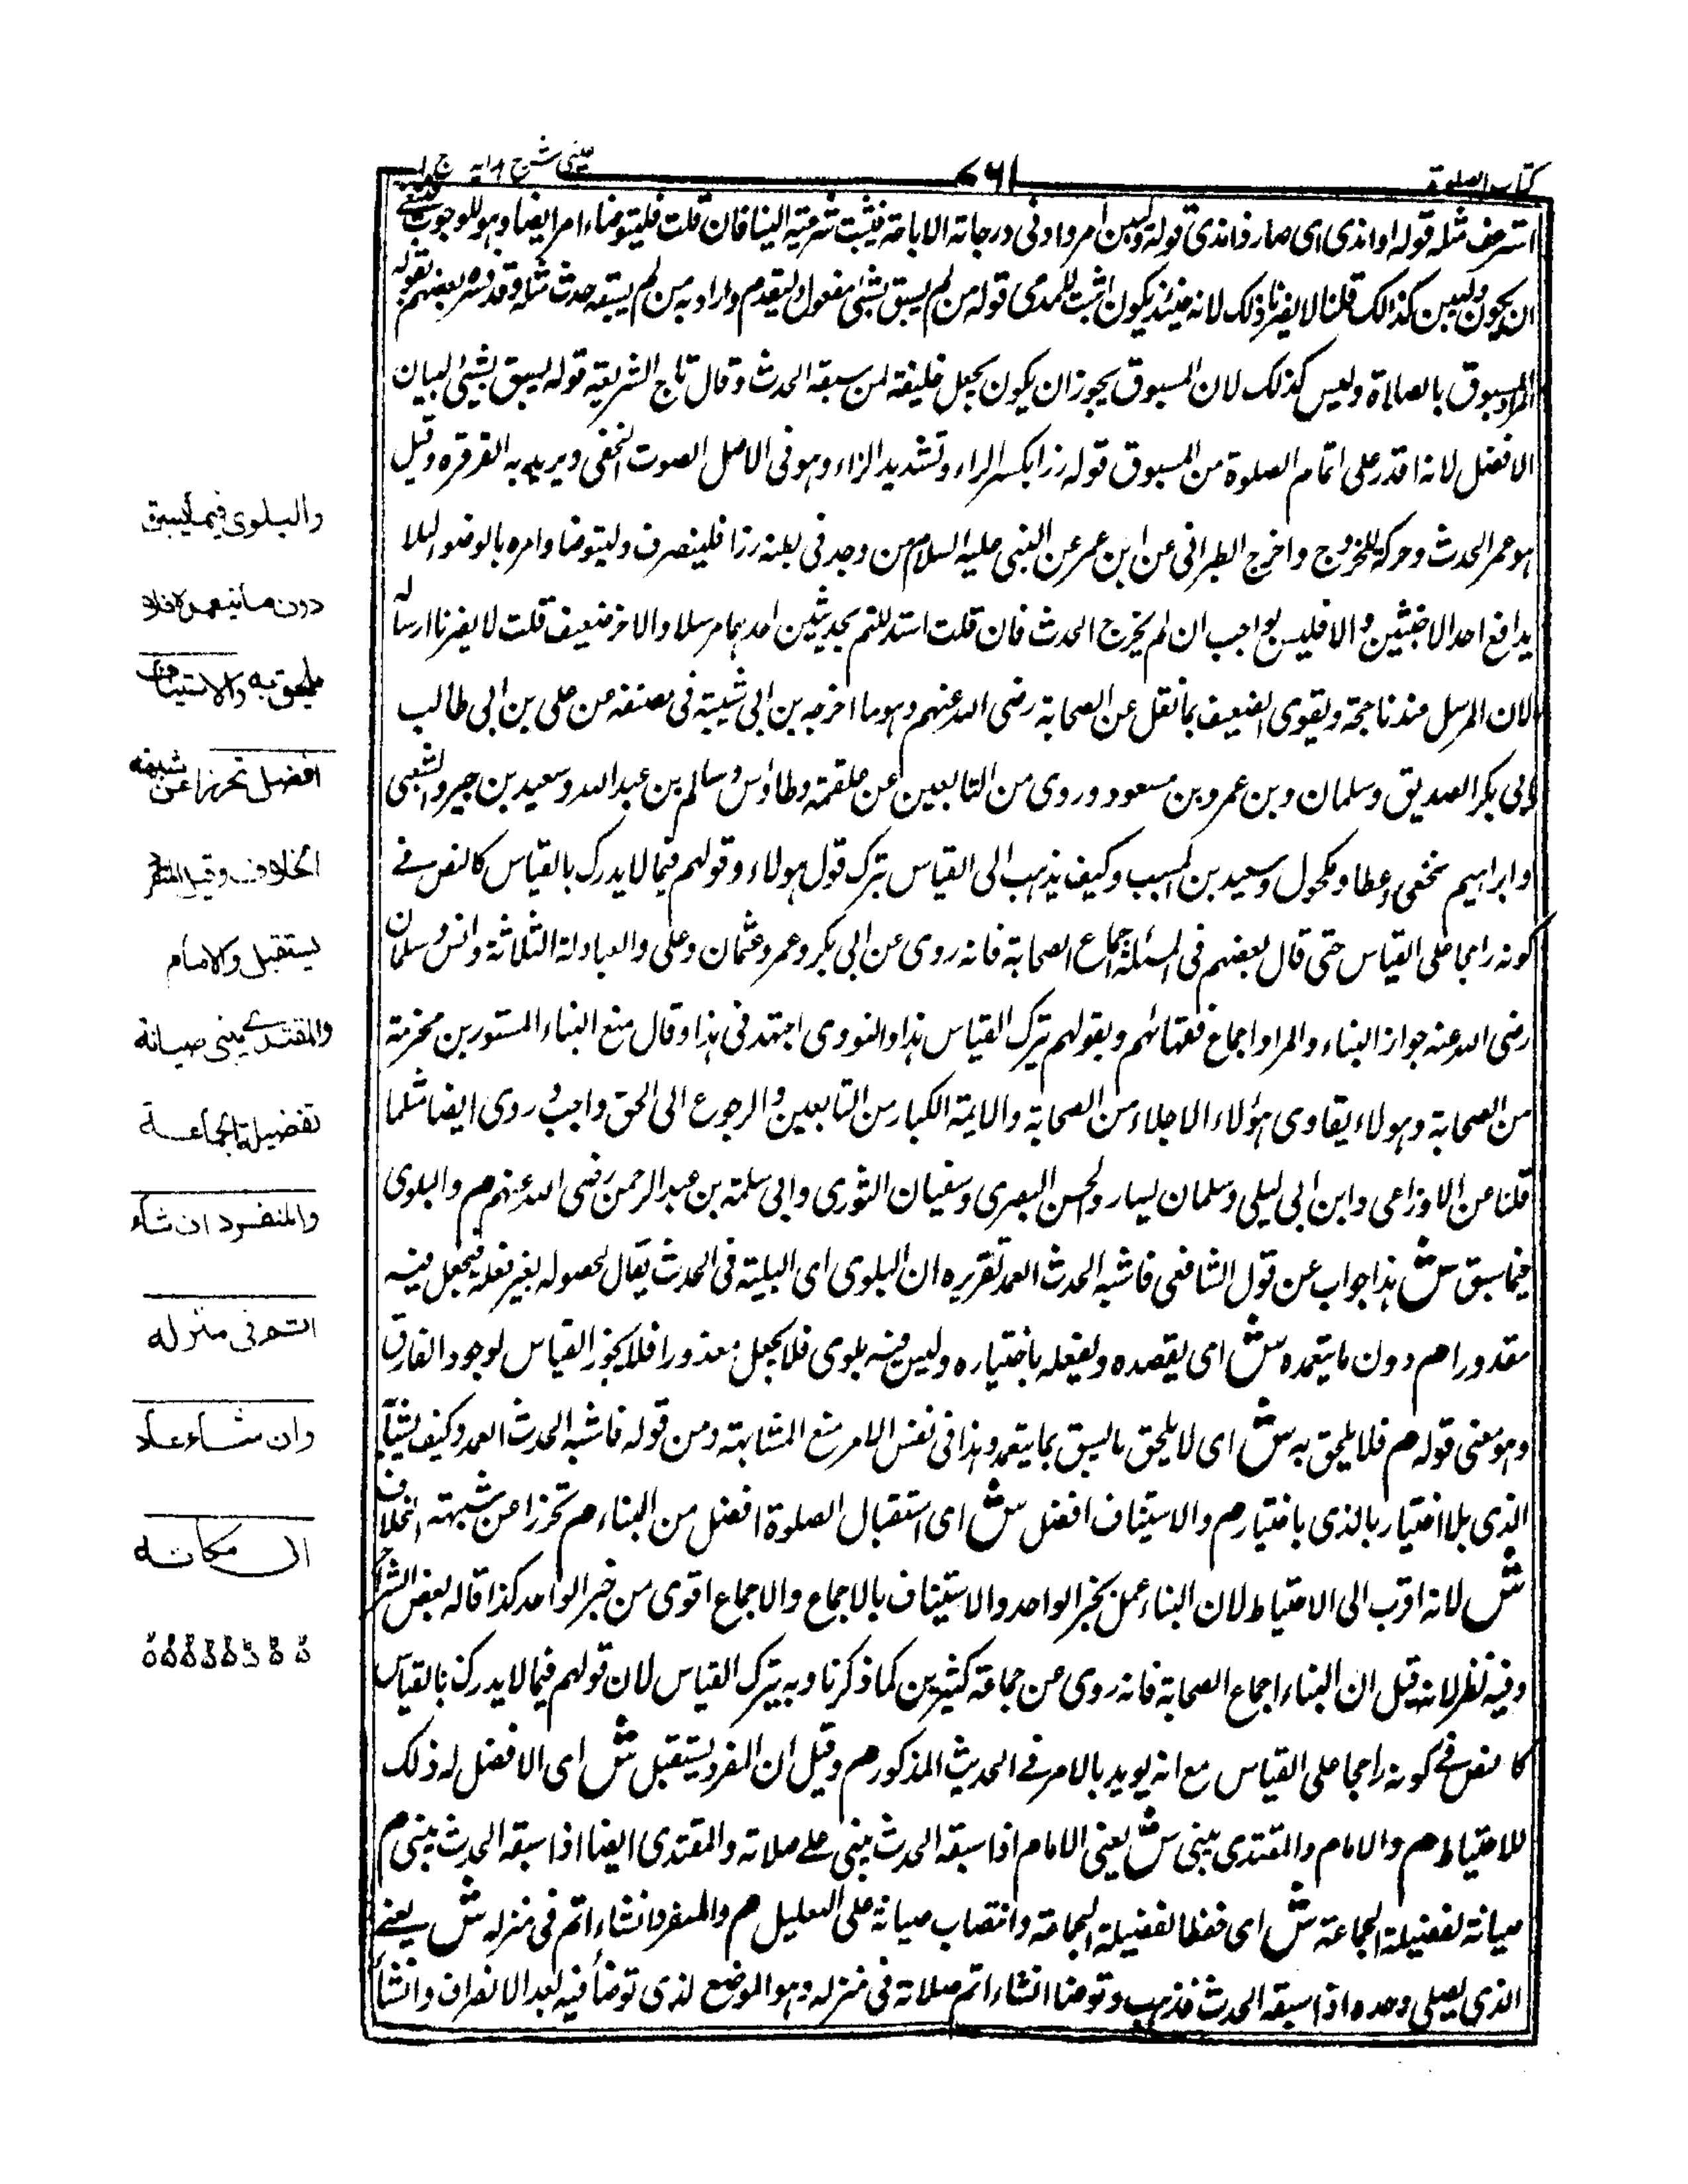 كتاب الصلوة
٧٦١
عينى شرح هدايه ج ا
استرعف مثله قوله او امذى اى صار ذا مذى قوله وليبن امر وادنى درجاته الاباحة فيثبت شرعية البناء فان قلت فليتوضاء امر ايضا وهو للوجوب فينبغى
ان يكون وليبن كذلك قلنا لا يضرنا ذلك لانه حينئذ يكون اثبت للمدعى قوله من لم يسبق بشئ مفعول وليقدم واراد به من لم يسبقه حدث مثله وقد فسره بعضهم بقوله
المراد مسبوق بالصلاة وليس كذلك لان المسبوق يجوز ان يكون يجعل خليفة لمن سبقه الحدث وقال تاج الشريعة قوله لم يسبق بشئ لبيان
الافضل لانه اقدر على اتمام الصلوة من المسبوق قوله رزا بكسر الراء وتشديد الزاء وهو فى الاصل الصوت الخفى ويريد به القرقرة وقيل
هو غمز الحدث وحركة للخروج واخرج الطبرانى عن ابن عمر عن النبى عليه السلام من وجد فى بطنه رزا فلينصرف وليتوضا وامره بالوضوء لئلا
يدافع احد الاخبثين والا فليس بواجب ان لم يخرج الحدث فان قلت استدللتم بحديثين احدهما مرسلا والاخر ضعيف قلت لا يضرنا ارساله
لان المرسل عندنا حجة ويقوى الضعيف بما نقل عن الصحابة رضى الله عنهم وهو ما اخرجه بن ابى شيبة فى مصنفه عن على بن ابى طالب
وابى بكر الصديق وسلمان وبن عمر وبن مسعود وروى من التابعين عن علقمة وطاؤس وسالم بن عبد الله وسعيد بن جبير والشعبى
وابراهيم نخعى وعطا ومكحول وسعيد بن المسيب وكيف يذهب الى القياس بترك قول هولاء وقولهم فيما لا يدرك بالقياس كالنص فى
كونه راجحا على القياس حتى قال بعضهم فى المسئلة اجماع الصحابة فانه روى عن ابى بكر وعمر وعثمان وعلى والعبادلة الثلاثة وانس وسلمان
رضى الله عنه جواز البناء والمراد اجماع فقهائهم وبقولهم يترك القياس هذا والنووى اجتهد فى هذا وقال منع البناء المستور بن مخرمة
من الصحابة وهولاء يقاوى هؤلاء الاجلاء من الصحابة والايمة الكبار من التابعين والرجوع الى الحق واجب وروى ايضا مثلما
قلنا عن الاوزاعى وابن ابى ليلى وسلمان يسار والحسن البصرى وسفيان الثورى وابى سلمة بن عبد الرحمن رضى الله عنهم م والبلوى
فيما سبق ش هذا جواب عن قول الشافعى فاشبه الحدث العمد تقريره ان البلوى اى البلية فى الحدث يقال لحصوله بغير فعله فيجعل فيه
معذورا م دون ما يتعمده ش اى يقصده ويفعله باختياره وليس فيه بلوى فلا يجعل معذورا فلا يجوز القياس لوجود الفارق
وهو معنى قوله م فلا يلحق به ش اى لا يلحق ما يسبق بما يتعمد وهذا فى نفس الامر منع المشابهة ومن قوله فاشبه الحدث العمد وكيف يشابه
الذى بلا اختيار بالذى باختيار م والاستيناف افضل ش اى استقبال الصلوة افضل من البناء م تحرزا عن شبهة الخلاف
ش لانه اقرب الى الاحتياط لان البناء عمل بخبر الواحد والاستيناف بالاجماع والاجماع اقوى من خبر الواحد كذا قاله بعض الشراح
وفيه نظر لانه قيل ان البناء اجماع الصحابة فانه روى عن جماعة كثيرين كما ذكرنا وبه يترك القياس لان قولهم فيما لا يدرك بالقياس
كالنص فى كونه راجحا على القياس مع انه يويد بالامر فى الحديث المذكور م وقيل ان المفرد يستقبل ش اى الافضل له ذلك
للاحتياط م والامام والمقتدى يبنى ش يعنى الامام اذا سبقه الحدث يبنى على صلاته والمقتدى ايضا اذا سبقه الحدث يبنى م
صيانة لفضيلة الجماعة ش اى حفظا لفضيلة الجماعة وانتصاب صيانة على التعليل م والمنفرد انشاء اتم فى منزله ش يعنى
الذى يصلى وحده اذا سبقه الحدث فذهب وتوضا انشاء اتم صلاته فى منزله وهو الموضع لذى توضأ فيه بعد الانصراف وانشأ
والبلوى فيما يسبق
دون ما يتعمده فلا
يلحق به والاستيناف
افضل تحرزا عن شبهة
الخلاف وقيل المنفرد
يستقبل والامام
والمقتدى يبنى صيانة
لفضيلة الجماعة
والمنفرد ان شاء
اتم فى منزله
وان شاء عاد
الى مكانه